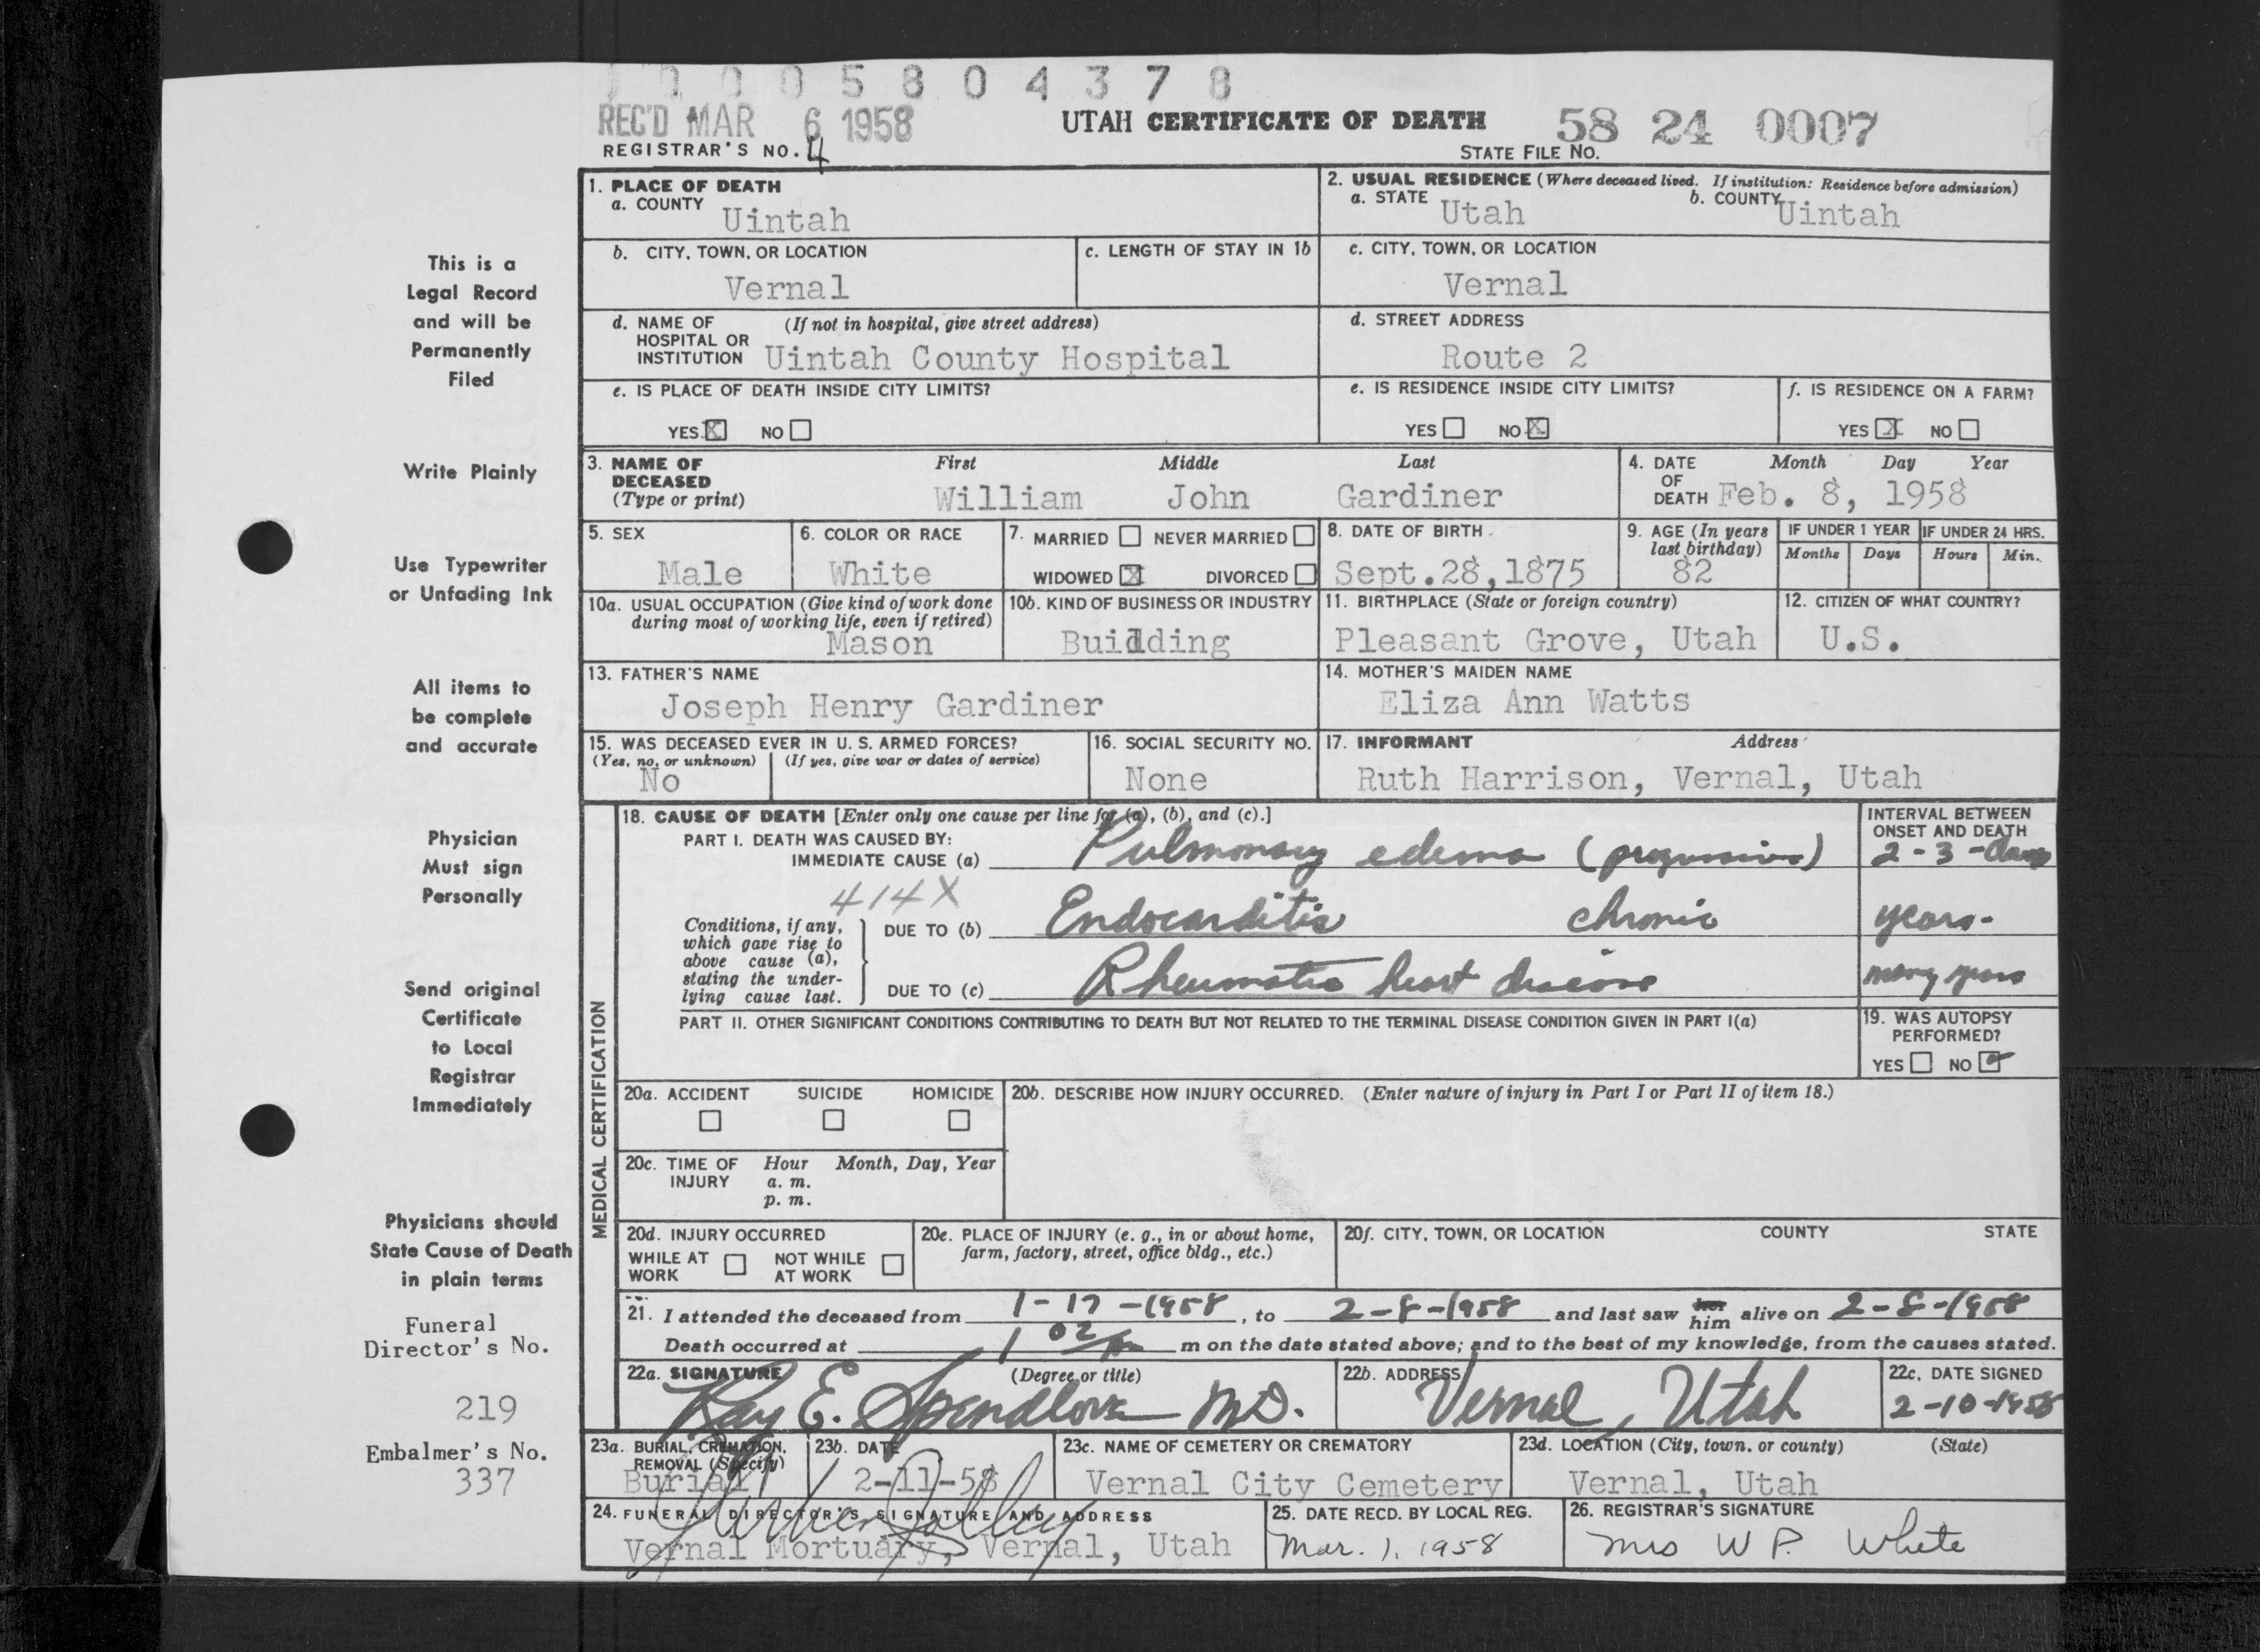 0 0 0 5 8 0 4 3 7 8
REC'D MAR 6 1958
UTAH CERTIFICATE OF DEATH
58 24 0007
REGISTRAR'S NO. 4
STATE FILE NO.
This is a
Legal Record
and will be
Permanently
Filed
Write Plainly
Use Typewriter
or Unfading Ink
All items to
be complete
and accurate
Physician
Must sign
Personally
Send original
Certificate
to Local
Registrar
Immediately
Physicians should
State Cause of Death
in plain terms
Funeral
Director's No.
219
Embalmer's No.
337
1. PLACE OF DEATH
a. COUNTY Uintah
2. USUAL RESIDENCE (Where deceased lived. If institution: Residence before admission)
a. STATE Utah b. COUNTY Uintah
b. CITY, TOWN, OR LOCATION
Vernal
c. LENGTH OF STAY IN 1b
c. CITY, TOWN, OR LOCATION
Vernal
d. NAME OF (If not in hospital, give street address)
HOSPITAL OR
INSTITUTION Uintah County Hospital
d. STREET ADDRESS
Route 2
e. IS PLACE OF DEATH INSIDE CITY LIMITS?
YES X NO
e. IS RESIDENCE INSIDE CITY LIMITS?
YES NO X
f. IS RESIDENCE ON A FARM?
YES X NO
3. NAME OF First Middle Last
DECEASED
(Type or print) William John Gardiner
4. DATE Month Day Year
OF
DEATH Feb. 8, 1958
5. SEX
Male
6. COLOR OR RACE
White
7. MARRIED NEVER MARRIED
WIDOWED X DIVORCED
8. DATE OF BIRTH
Sept.28,1875
9. AGE (In years
last birthday)
82
IF UNDER 1 YEAR
Months Days
IF UNDER 24 HRS.
Hours Min.
10a. USUAL OCCUPATION (Give kind of work done
during most of working life, even if retired)
Mason
10b. KIND OF BUSINESS OR INDUSTRY
Building
11. BIRTHPLACE (State or foreign country)
Pleasant Grove, Utah
12. CITIZEN OF WHAT COUNTRY?
U.S.
13. FATHER'S NAME
Joseph Henry Gardiner
14. MOTHER'S MAIDEN NAME
Eliza Ann Watts
15. WAS DECEASED EVER IN U. S. ARMED FORCES?
(Yes, no, or unknown) (If yes, give war or dates of service)
No
16. SOCIAL SECURITY NO.
None
17. INFORMANT Address
Ruth Harrison, Vernal, Utah
MEDICAL CERTIFICATION
18. CAUSE OF DEATH [Enter only one cause per line for (a), (b), and (c).]
PART I. DEATH WAS CAUSED BY:
IMMEDIATE CAUSE (a) Pulmonary edema (progressive)
INTERVAL BETWEEN
ONSET AND DEATH
2-3-days
414X
Conditions, if any,
which gave rise to
above cause (a),
stating the under-
lying cause last.
DUE TO (b) Endocarditis chronic
years-
DUE TO (c) Rheumatic heart disease
many years
PART II. OTHER SIGNIFICANT CONDITIONS CONTRIBUTING TO DEATH BUT NOT RELATED TO THE TERMINAL DISEASE CONDITION GIVEN IN PART I(a)
19. WAS AUTOPSY
PERFORMED?
YES NO
20a. ACCIDENT SUICIDE HOMICIDE
20b. DESCRIBE HOW INJURY OCCURRED. (Enter nature of injury in Part I or Part II of item 18.)
20c. TIME OF Hour Month, Day, Year
INJURY a. m.
p. m.
20d. INJURY OCCURRED
WHILE AT NOT WHILE
WORK AT WORK
20e. PLACE OF INJURY (e. g., in or about home,
farm, factory, street, office bldg., etc.)
20f. CITY, TOWN, OR LOCATION COUNTY STATE
21. I attended the deceased from 1-17-1958, to 2-8-1958 and last saw her him alive on 2-8-1958
Death occurred at 1 02 m on the date stated above; and to the best of my knowledge, from the causes stated.
22a. SIGNATURE (Degree or title)
Ray E. Spendlove MD.
22b. ADDRESS
Vernal, Utah
22c. DATE SIGNED
2-10-1958
23a. BURIAL, CREMATION,
REMOVAL (Specify)
Burial
23b. DATE
2-11-58
23c. NAME OF CEMETERY OR CREMATORY
Vernal City Cemetery
23d. LOCATION (City, town, or county) (State)
Vernal, Utah
24. FUNERAL DIRECTOR'S SIGNATURE AND ADDRESS
Vernal Mortuary, Vernal, Utah
25. DATE RECD. BY LOCAL REG.
Mar. 1, 1958
26. REGISTRAR'S SIGNATURE
Mrs W P. White